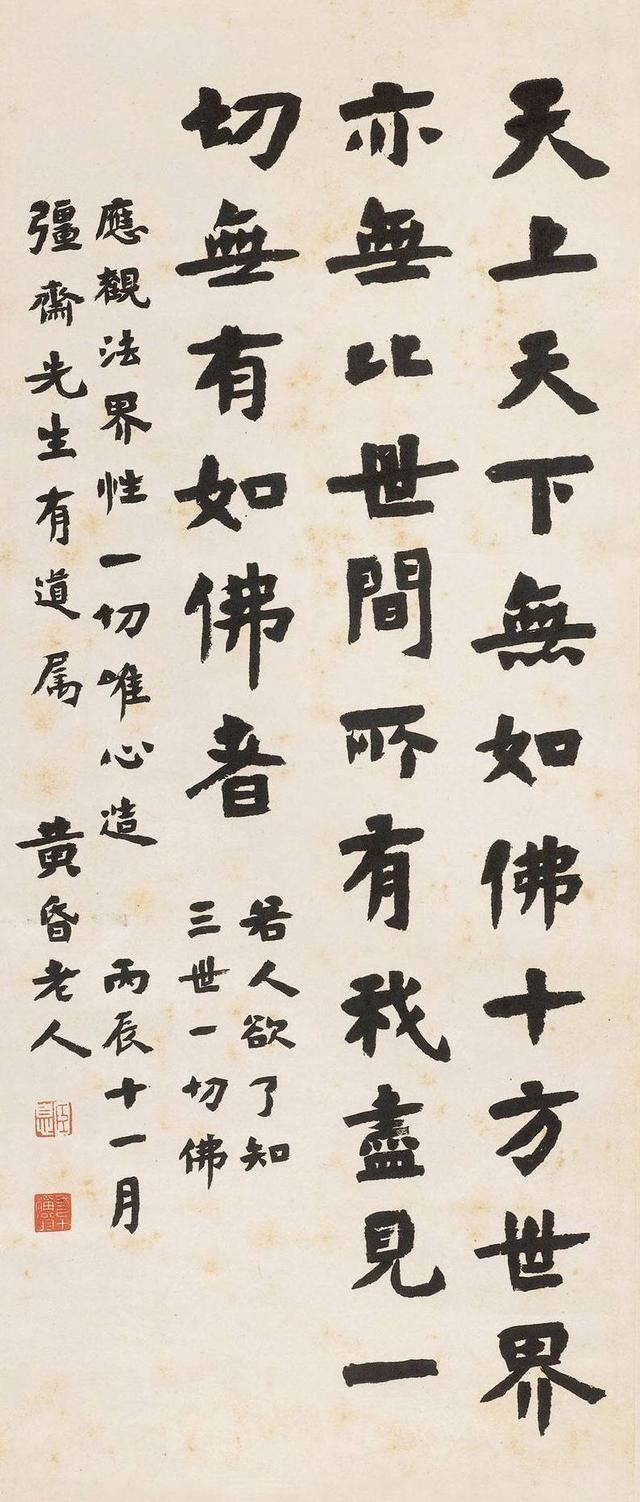 天上天下無如佛十方世界
亦無比世間所有我盡見一
切無有如佛者
若人欲了知
三世一切佛
應觀法界性一切唯心造 丙辰十一月
彊齋先生有道属 黄昏老人